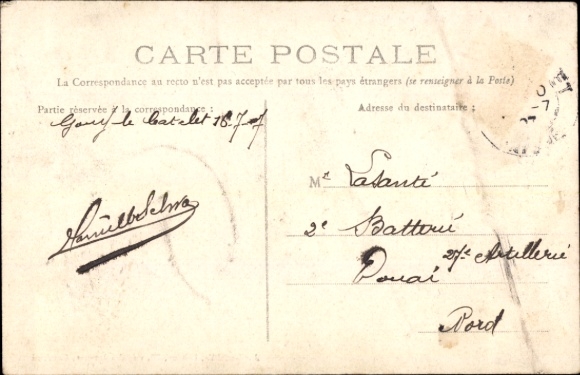 CARTE POSTALE
La Correspondance au recto n'est pas acceptée par tous les pays étrangers (se renseigner à la Poste)
Partie réservée à la correspondance :
Gouy le Catelet 16.7.07
Adresse du destinataire :
Mr Lasanté
2e Batterie
27e Artillerie
Douai
Nord